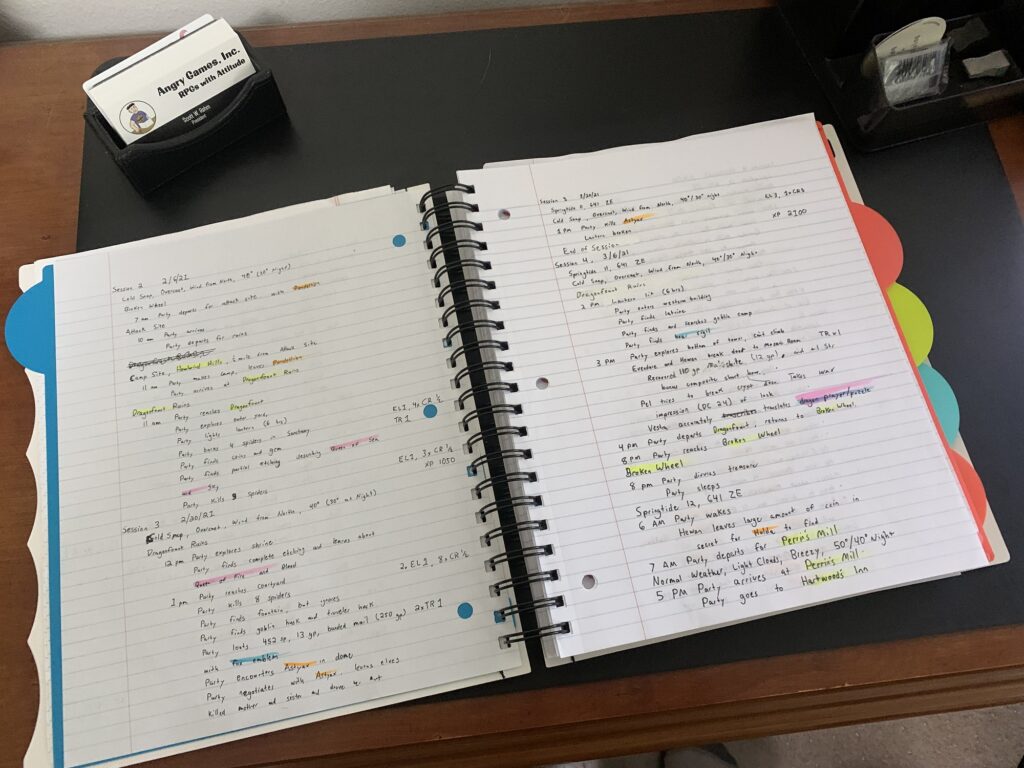 Angry Games, Inc.
RPGs with Attitude
President
Session 2 2/6/21
Cold Snap, Overcast, Wind from North, 40° (30° Night)
Broken Wheel
7 am Party departs for attack site with
Attack Site
10 am Party arrives
Party departs for ruins
Camp Site, Hills, mile from Attack Site
11 am Party makes camp, leaves
Party arrives at Dragonfront Ruins
Dragonfront Ruins
11 am Party reaches Dragonfront
Party explores outer yard,
Party lights lantern (6 hrs)
Party burns 4 spiders in Sanctuary EL1, 4x CR ½
Party finds coins and gem TR 1
Party finds partial etching describing Queen of Sea
and Sky
Party kills 3 spiders EL1, 3x CR ½
XP 1050
Session 3 2/20/21
Cold Snap, Overcast, Wind from North, 40° (30° at Night)
Dragonfront Ruins
12 pm Party explores shrine
Party finds complete etching and learns about
Queen of Fire and Blood
1 pm Party reaches courtyard
Party kills 8 spiders 2, EL1, 8x CR ½
Party finds fountain, but ignores
Party finds goblin track and traveler track
Party loots 452 sp, 13 gp, banded mail (250 gp) 2xTR1
with fox emblem
Party encounters Astyax in dome
Party negotiates with Astyax, learns elves
killed mother and sister and drove her out
Session 3 2/20/21
Springtide 11, 641 ZE
Cold Snap, Overcast, Wind from North, 40°/30° night
1 PM Party kills Astyax EL3, 1xCR3
Lantern broken XP 2100
End of Session
Session 4, 3/6/21
Springtide 11, 641 ZE
Cold Snap, Overcast, Wind from North, 40°/30° Night.
Dragonfront Ruins
2 PM Lantern lit (6 hrs)
Party enters western building
Party finds latrine
Party finds and searches goblin camp
Party finds bear sigil
3 PM Party explores bottom of tower, can't climb
Evendure and Hewan break door to Mosaic Room TR x1
Recovered 180 gp
bonus composite short bow,
Pel tries to break crypt door. Takes wax
impression (DC 24) of lock
Vesha accurately translates dragon prayer/puzzle
4 PM Party departs Dragonfront, returns to Broken Wheel.
8 pm Party reaches Broken Wheel
Broken Wheel
8 pm Party divvies treasure
Party sleeps
Springtide 12, 641 ZE
6 AM Party wakes
Hewan leaves large amount of coin in
secret for Holda to find
7 AM Party departs for Perrin's Mill
Normal Weather, Light Clouds, Breezy, 50°/40° Night
5 PM Party arrives at Perrin's Mill
Party goes to Hartwood's Inn